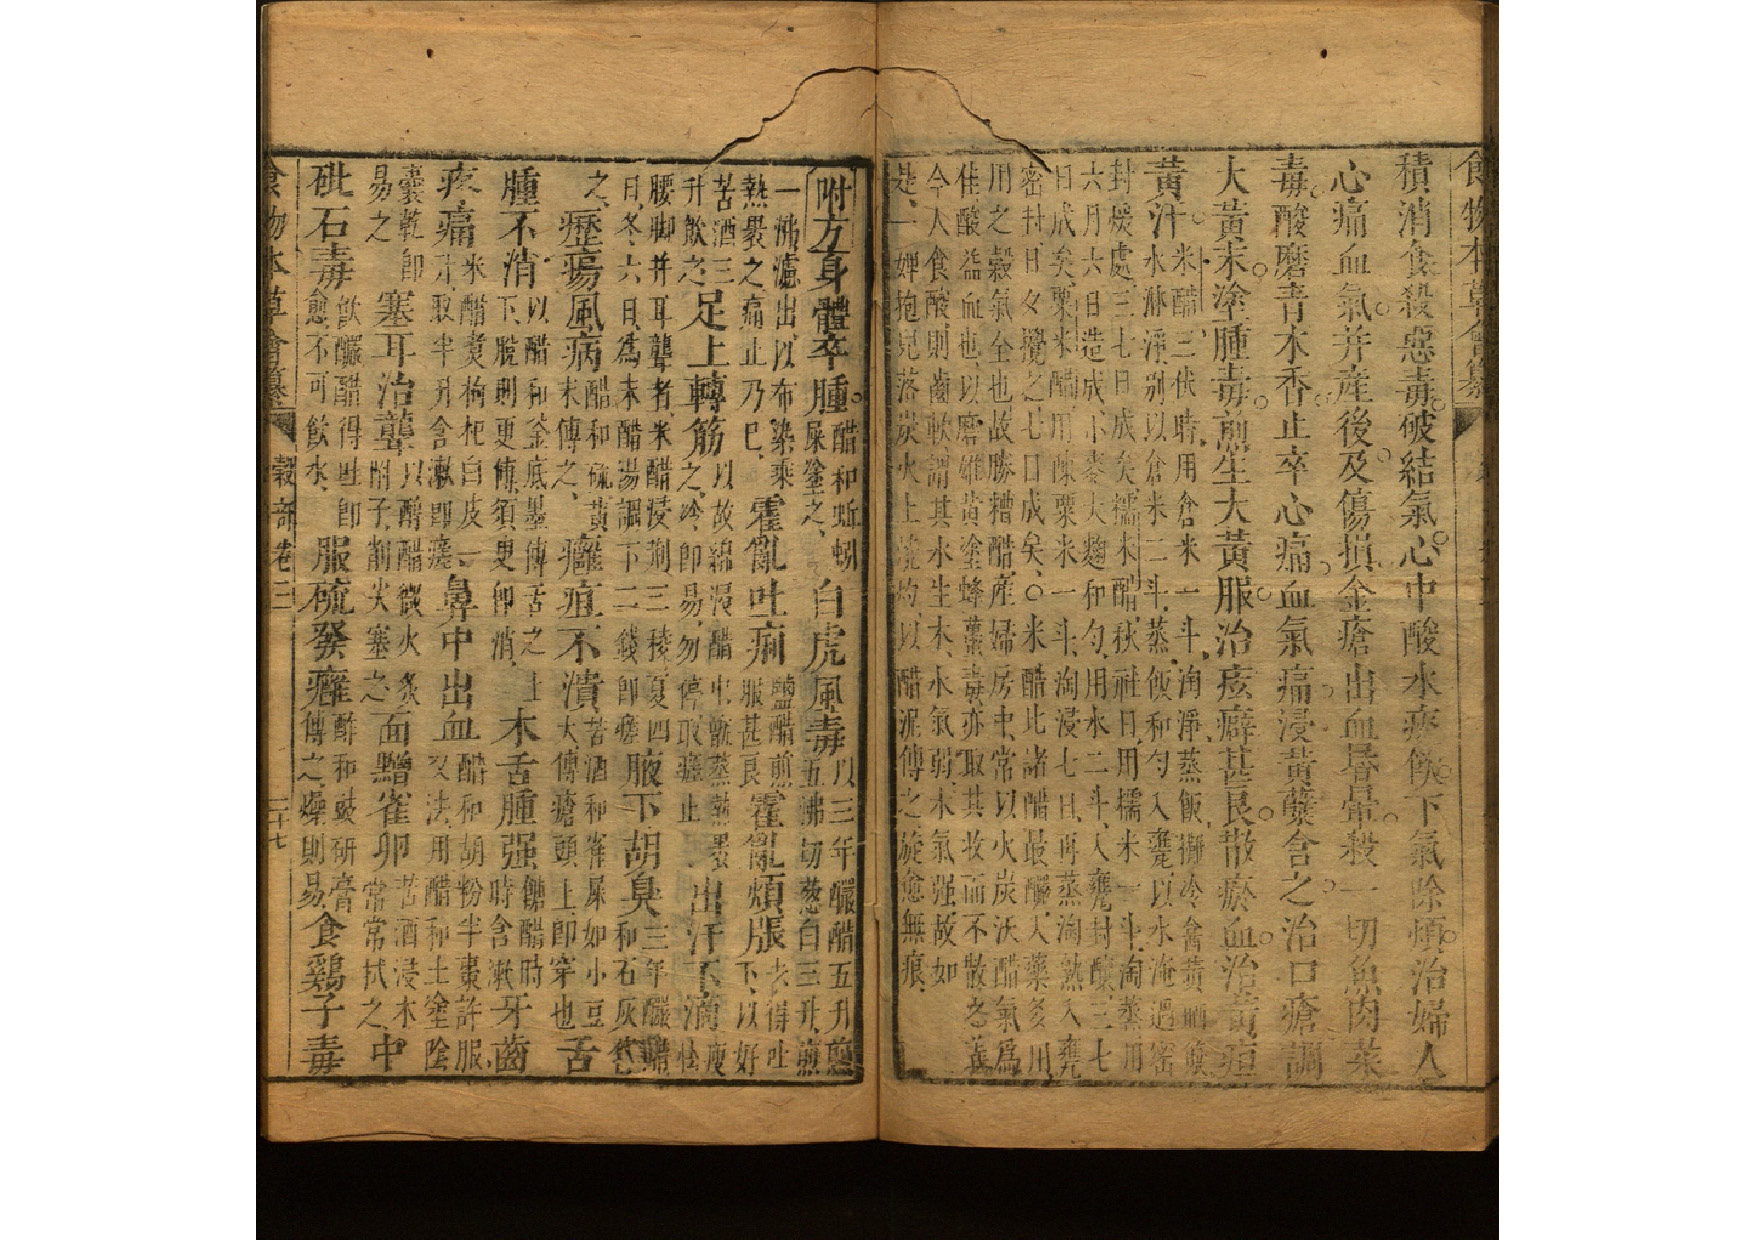 食物本草會纂
積消食殺惡毒破結氣心中酸水痰飲下氣除煩治婦人
心痛血氣并產後及傷損金瘡出血昏暈殺一切魚肉菜
毒酸磨青木香止卒心痛血氣痛浸黃蘗含之治口瘡調
大黃末塗腫毒煎生大黃服治痃癖甚良散瘀血治黃疸
黃汗
米醋三伏時用倉米一斗淘淨蒸飯攤冷盦黃晒簸
水淋淨別以倉米二斗蒸飯和勻入甕以水淹過密
封煖處三七日成矣糯米醋秋社日用糯米一斗淘蒸用
六月六日造成小麥大麴和勻用水二斗入甕封釀三七
日成矣粟米醋用陳粟米一斗淘浸七日再蒸淘熟入甕
密封日夕攪之七日成矣○米醋比諸醋最釅入藥多用
用之穀氣全也故勝糟醋產婦房中常以火炭沃醋氣爲
佳酸益血也以磨雄黃塗蜂蠆毒亦取其收而不散之義
今人食酸則齒軟謂其水生木水氣弱木氣强故如
是一婢抱兒落炭火上燒灼以醋泥傅之旋愈無痕
附方身體卒腫
醋和蚯蚓
屎塗之
白虎風毒
以三年釅醋五升煎
五沸切葱白三升煎
一沸濾出以布染乘
熱褁之痛止乃已
霍亂吐痢
鹽醋煎
服甚良
霍亂煩脹
未得吐
下以好
苦酒三
升飲之
足上轉筋
以故綿浸醋中甑蒸熱褁
之冷卽易勿停取瘥止
出汗不滴
瘦怯
腰脚并耳聾者米醋浸荆三稜夏四
日冬六日爲末醋湯調下二錢卽瘥
腋下胡臭
三年釅醋
和石灰傅
之
癧瘍風病
醋和硫黃
末傅之
癰疽不潰
苦酒和雀屎如小豆
大傅瘡頭上卽穿也
舌
腫不消
以醋和釜底墨傅舌之上
下脫則更傅須臾卽消
木舌腫强
餹醋時
時含漱
牙齒
疼痛
米醋煑枸杞白皮一
升取半升含漱卽瘥
鼻中出血
醋和胡粉半棗許服
又法用醋和土塗陰
囊乾卽
易之
塞耳治聾
以醇醋微火炙
附子削尖塞之
面䵟雀卵
苦酒浸木
常常拭之
中
砒石毒
飲釅醋得吐卽
愈不可飲水
服硫發癰
酢和豉研膏
傅之燥則易
食鷄子毒
食物本草會纂 穀部卷三 二十七